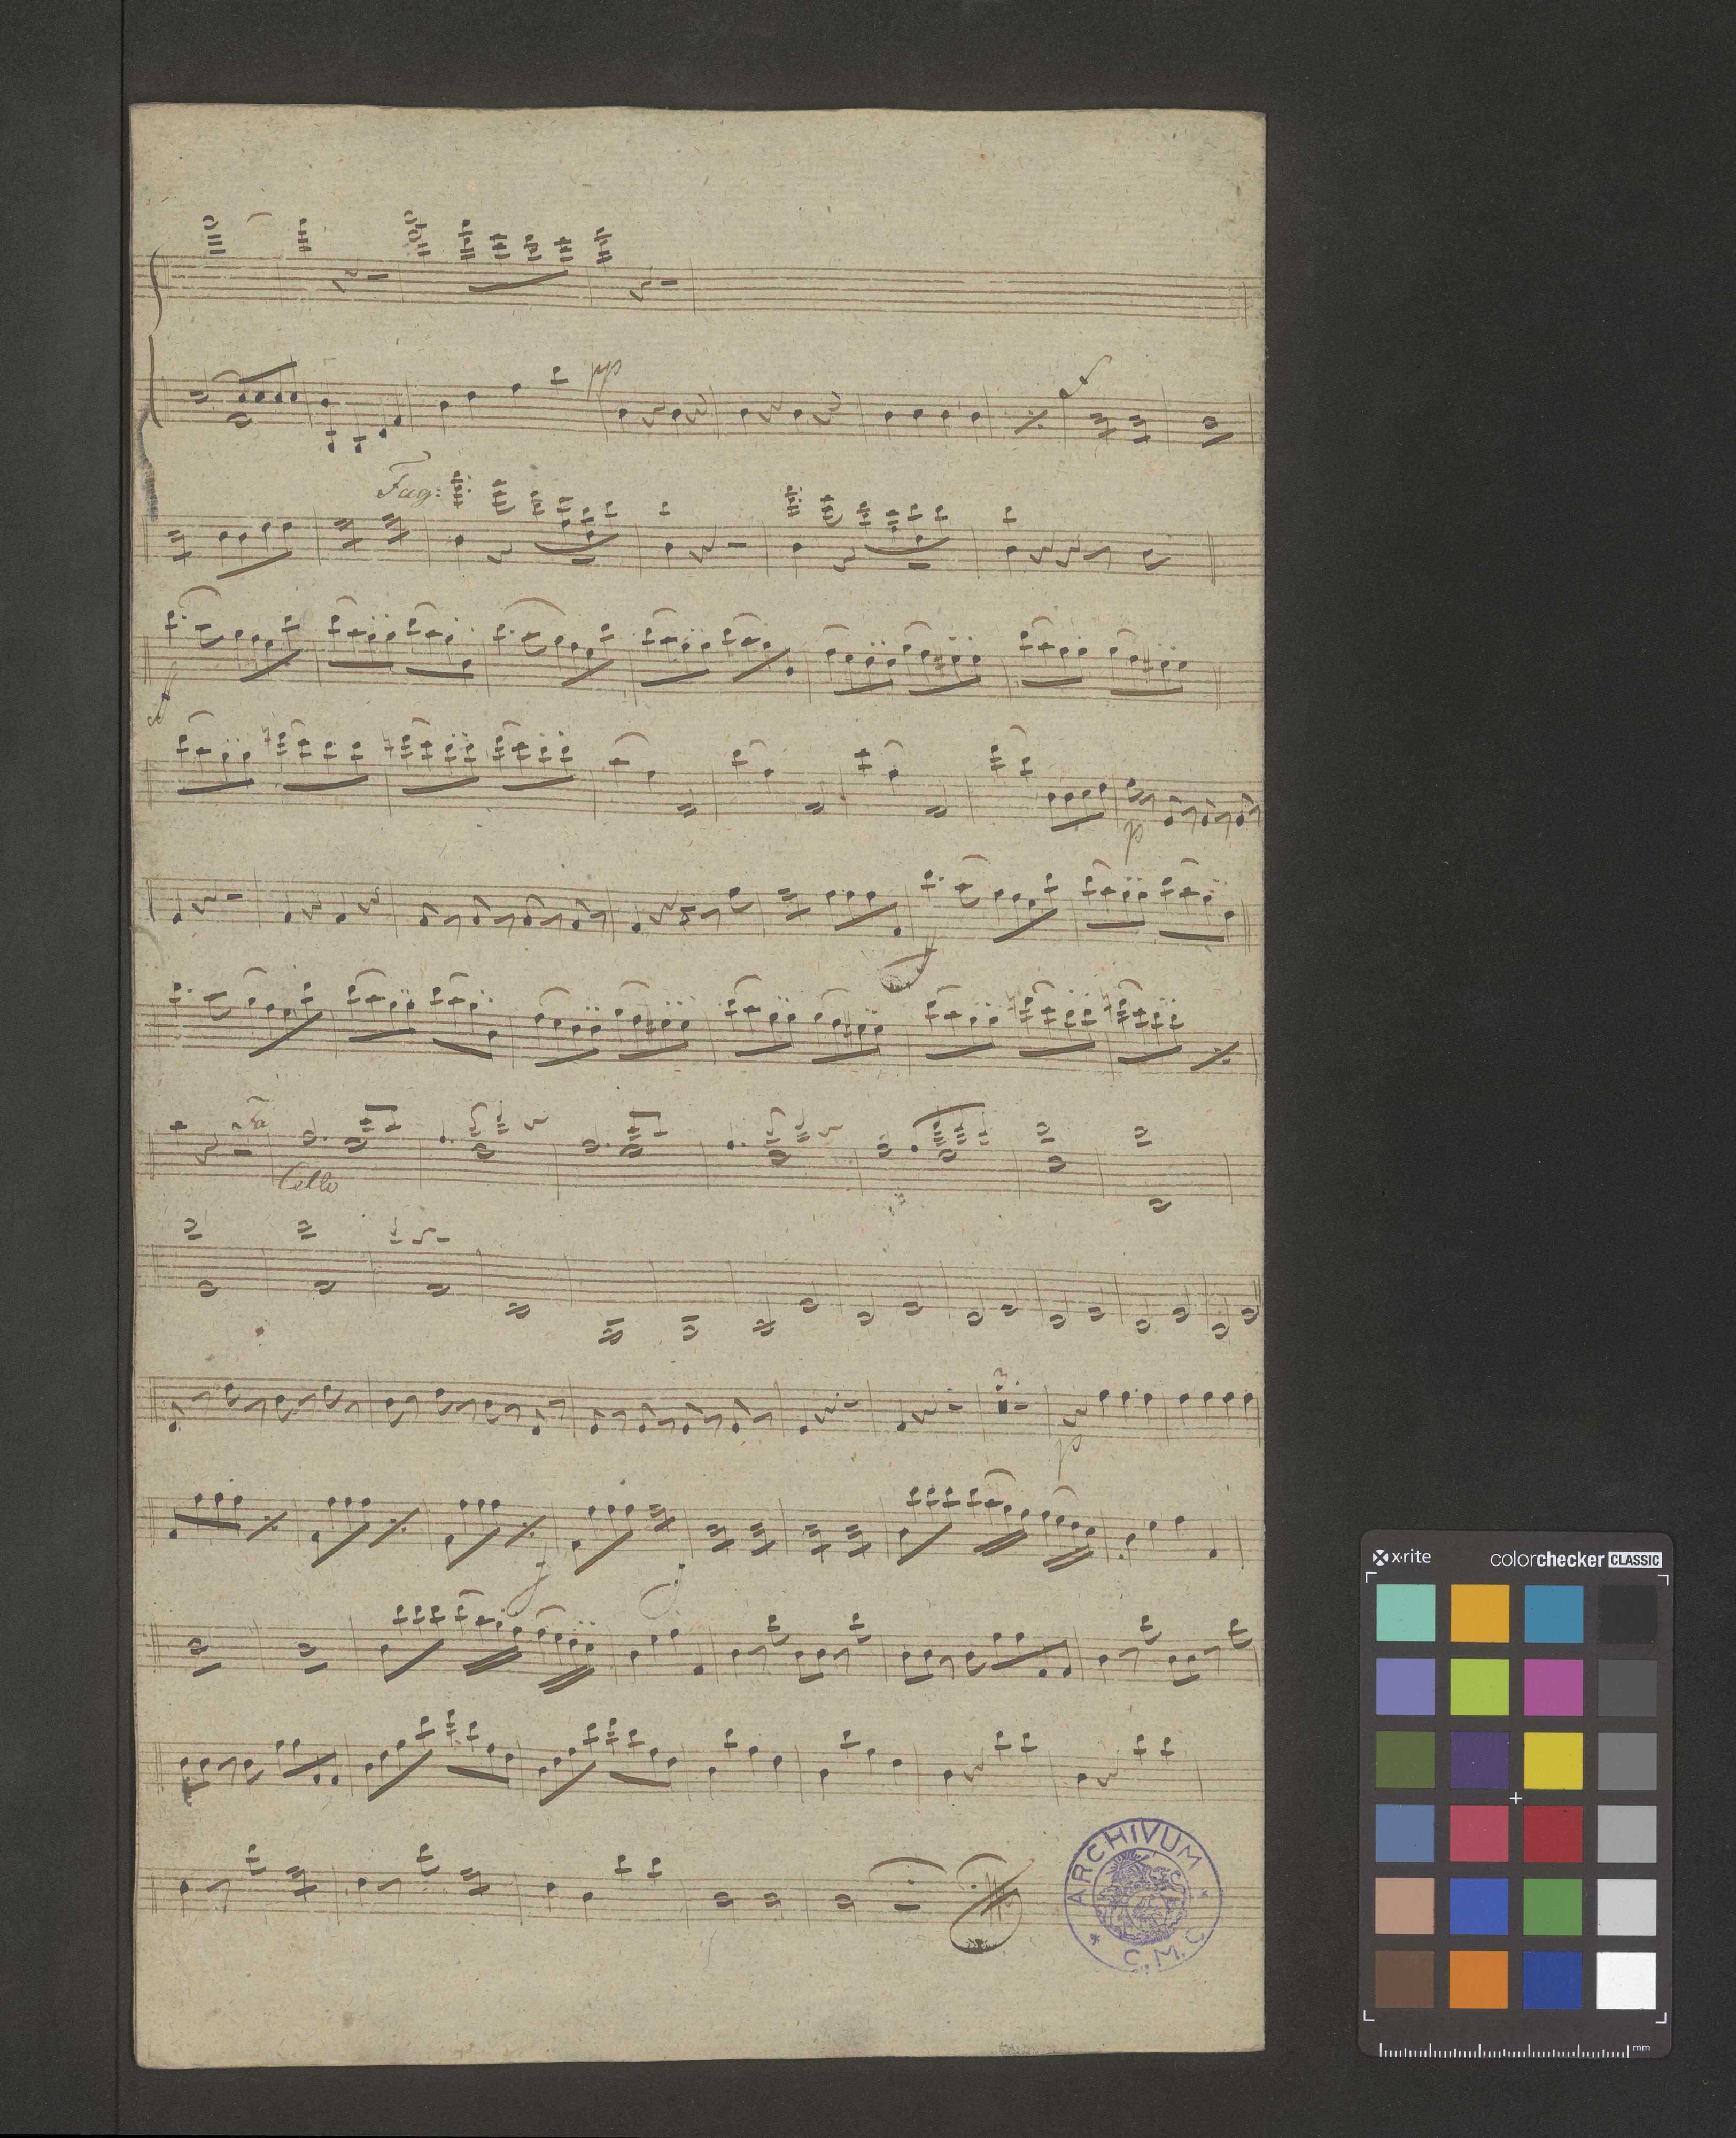 pp
f
Fag:
f
p
f
Fa
Cello
3.
p
f
f
ARCHIVUM
* C.M.C.
x·rite
colorchecker CLASSIC
mm